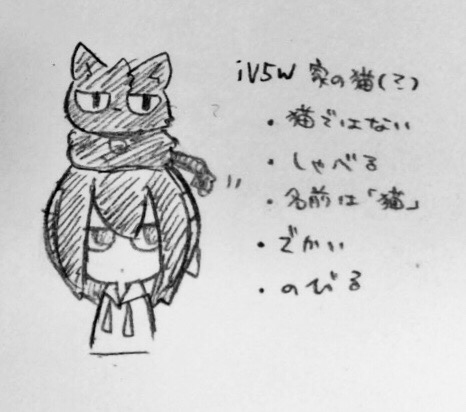 iV5W 家の猫(?)
・猫ではない
・しゃべる
・名前は「猫」
・でかい
・のびる